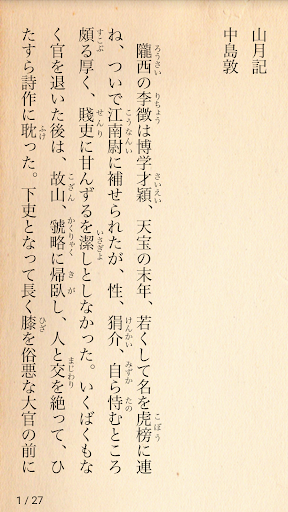 山月記
中島敦
隴西の李徴は博学才穎、天宝の末年、若くして名を虎榜に連
ね、ついで江南尉に補せられたが、性、狷介、自ら恃むところ
頗る厚く、賤吏に甘んずるを潔しとしなかった。いくばくもな
く官を退いた後は、故山、虢略に帰臥し、人と交を絶って、ひ
たすら詩作に耽った。下吏となって長く膝を俗悪な大官の前に
1 / 27